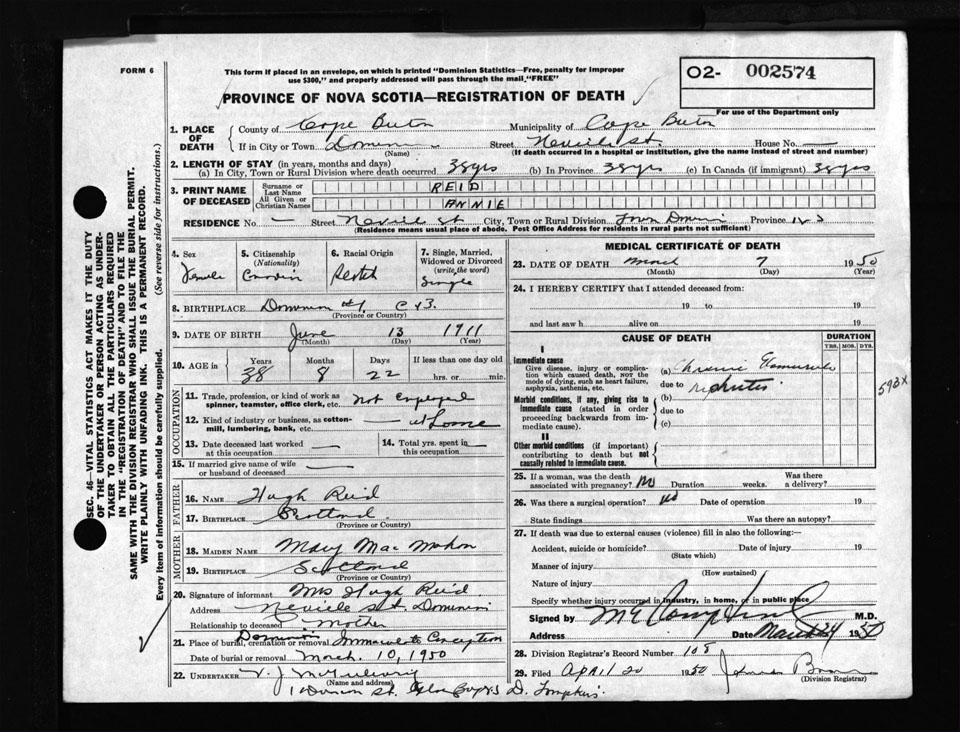 FORM 6
This form if placed in an envelope, on which is printed "Dominion Statistics—Free, penalty for improper
use $300," and properly addressed will pass through the mail "FREE"
O2- 002574
PROVINCE OF NOVA SCOTIA—REGISTRATION OF DEATH
For use of the Department only
SEC. 46—VITAL STATISTICS ACT MAKES IT THE DUTY
OF THE UNDERTAKER OR PERSON ACTING AS UNDER-
TAKER TO OBTAIN ALL THE PARTICULARS REQUIRED
IN THE "REGISTRATION OF DEATH" AND TO FILE THE
SAME WITH THE DIVISION REGISTRAR WHO SHALL ISSUE THE BURIAL PERMIT.
WRITE PLAINLY WITH UNFADING INK. THIS IS A PERMANENT RECORD.
Every item of information should be carefully supplied. (See reverse side for instructions.)
1. PLACE OF DEATH
County of Cape Breton Municipality of Cape Breton
If in City or Town Dominion Street Neville St. House No. —
(Name) (If death occurred in a hospital or institution, give the name instead of street and number)
2. LENGTH OF STAY (in years, months and days)
(a) In City, Town or Rural Division where death occurred 38yrs (b) In Province 38yrs (c) In Canada (if immigrant) 38yrs
3. PRINT NAME OF DECEASED
Surname or Last Name REID
All Given or Christian Names ANNIE
RESIDENCE No — Street Neville St City, Town or Rural Division Town Dominion Province N S
(Residence means usual place of abode. Post Office Address for residents in rural parts not sufficient)
4. Sex Female
5. Citizenship (Nationality) Canadian
6. Racial Origin Scotch
7. Single, Married, Widowed or Divorced (write the word) Single
8. BIRTHPLACE Dominion #1 C B.
(Province or Country)
9. DATE OF BIRTH June 13 1911
(Month) (Day) (Year)
10. AGE in Years 38 Months 8 Days 22 If less than one day old
hrs. or min.
OCCUPATION
11. Trade, profession, or kind of work as spinner, teamster, office clerk, etc. Not Employed
12. Kind of industry or business, as cotton-mill, lumbering, bank, etc. at Home
13. Date deceased last worked at this occupation —
14. Total yrs. spent in this occupation —
15. If married give name of wife or husband of deceased —
FATHER
16. NAME Hugh Reid
17. BIRTHPLACE Scotland
(Province or Country)
MOTHER
18. MAIDEN NAME Mary Mac Mahon
19. BIRTHPLACE Scotland
(Province or Country)
20. Signature of informant Mrs Hugh Reid
Address Neville St. Dominion
Relationship to deceased Mother
21. Place of burial, cremation or removal Dominion Immaculate Conception
Date of burial or removal March 10, 1950
22. UNDERTAKER
(Name and address)
MEDICAL CERTIFICATE OF DEATH
23. DATE OF DEATH March 7 1950
(Month) (Day) (Year)
24. I HEREBY CERTIFY that I attended deceased from:
19 to 19
and last saw h alive on 19
CAUSE OF DEATH DURATION
YRS. MOS. DYS.
I
Immediate cause
Give disease, injury or complication which caused death, NOT the mode of dying, such as heart failure, asphyxia, asthenia, etc.
(a) Chronic Glomerulo
due to nephritis
593X
Morbid conditions, if any, giving rise to immediate cause (stated in order proceeding backwards from immediate cause).
(b)
due to
(c)
II
Other morbid conditions (if important) contributing to death but not causally related to immediate cause.
25. If a woman, was the death associated with pregnancy? No Duration weeks. Was there a delivery?
26. Was there a surgical operation? No Date of operation 19
State findings Was there an autopsy?
27. If death was due to external causes (violence) fill in also the following:—
Accident, suicide or homicide? Date of injury 19
(State which)
Manner of injury
(How sustained)
Nature of injury
Specify whether injury occurred in industry, in home, or in public place
Signed by M.D.
Address Date March 24 1950
28. Division Registrar's Record Number 108
29. Filed April 20 1950
(Division Registrar)
D. Tompkins